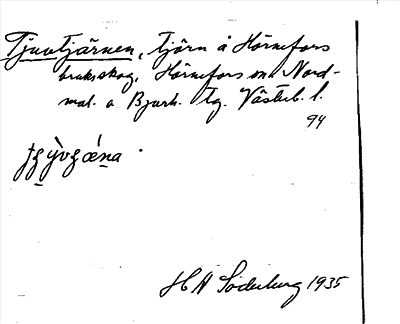 Tjuvtjärnen, tjärn å Hörnefors
bruksskog, Hörnefors sn Nord-
mal. o Bjurh. tg. Västerb. l.
94
H A Söderberg 1935